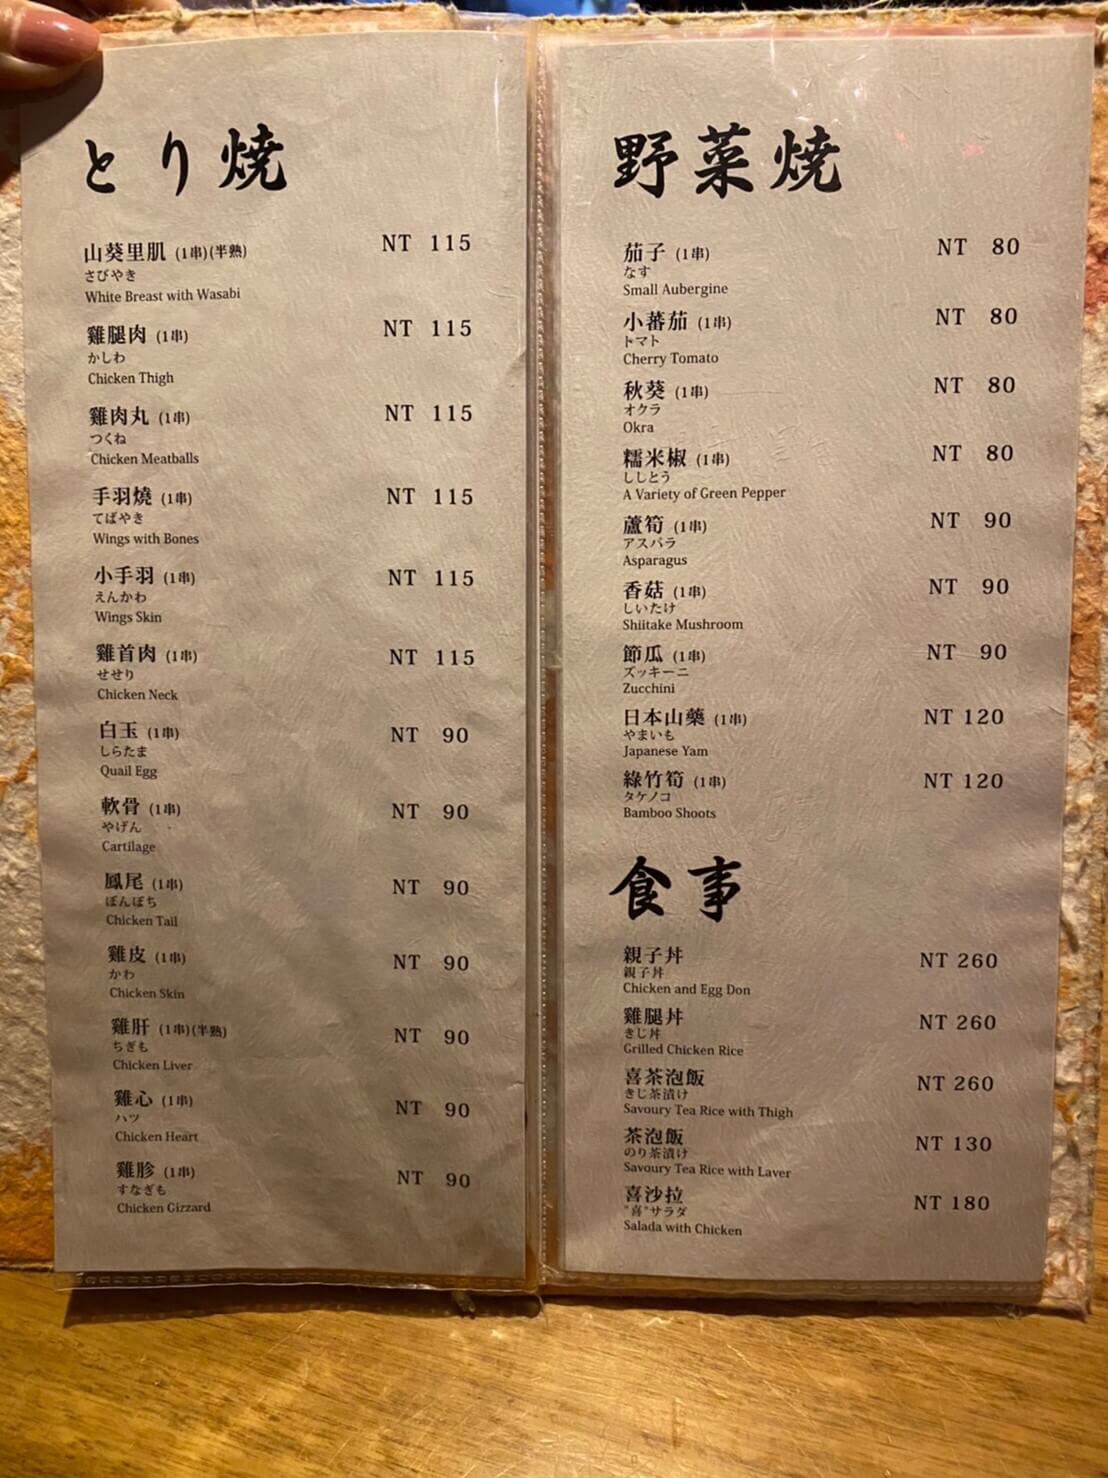 とり焼
山葵里肌 (1串)(半熟) NT 115
さびやき
White Breast with Wasabi
雞腿肉 (1串) NT 115
かしわ
Chicken Thigh
雞肉丸 (1串) NT 115
つくね
Chicken Meatballs
手羽燒 (1串) NT 115
てばやき
Wings with Bones
小手羽 (1串) NT 115
えんかわ
Wings Skin
雞首肉 (1串) NT 115
せせり
Chicken Neck
白玉 (1串) NT 90
しらたま
Quail Egg
軟骨 (1串) NT 90
やげん
Cartilage
鳳尾 (1串) NT 90
ぼんぼち
Chicken Tail
雞皮 (1串) NT 90
かわ
Chicken Skin
雞肝 (1串)(半熟) NT 90
ちぎも
Chicken Liver
雞心 (1串) NT 90
ハツ
Chicken Heart
雞胗 (1串) NT 90
すなぎも
Chicken Gizzard
野菜焼
茄子 (1串) NT 80
なす
Small Aubergine
小蕃茄 (1串) NT 80
トマト
Cherry Tomato
秋葵 (1串) NT 80
オクラ
Okra
糯米椒 (1串) NT 80
ししとう
A Variety of Green Pepper
蘆筍 (1串) NT 90
アスパラ
Asparagus
香菇 (1串) NT 90
しいたけ
Shiitake Mushroom
節瓜 (1串) NT 90
ズッキーニ
Zucchini
日本山藥 (1串) NT 120
やまいも
Japanese Yam
綠竹筍 (1串) NT 120
タケノコ
Bamboo Shoots
食事
親子丼 NT 260
親子丼
Chicken and Egg Don
雞腿丼 NT 260
きじ丼
Grilled Chicken Rice
喜茶泡飯 NT 260
きじ茶漬け
Savoury Tea Rice with Thigh
茶泡飯 NT 130
のり茶漬け
Savoury Tea Rice with Laver
喜沙拉 NT 180
"喜"サラダ
Salada with Chicken